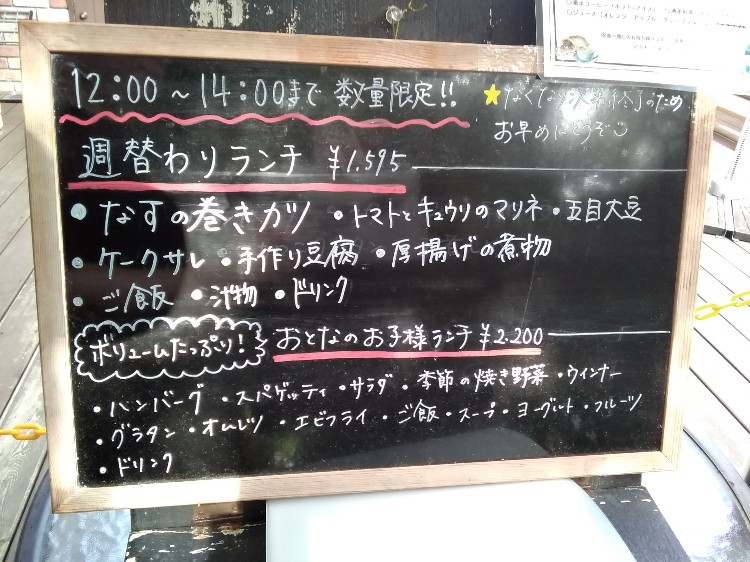 12:00～14:00まで 数量限定!!
★なくなり次第終了のため
お早めにどうぞ
週替わりランチ ¥1.595
・なすの巻きカツ ・トマトとキュウリのマリネ ・五目大豆
・ケークサレ ・手作り豆腐 ・厚揚げの煮物
・ご飯 ・汁物 ・ドリンク
ボリュームたっぷり!
おとなのお子様ランチ ¥2.200
・ハンバーグ ・スパゲッティ ・サラダ ・季節の焼き野菜 ・ウインナー
・グラタン ・オムレツ ・エビフライ ・ご飯 ・スープ ・ヨーグルト ・フルーツ
・ドリンク